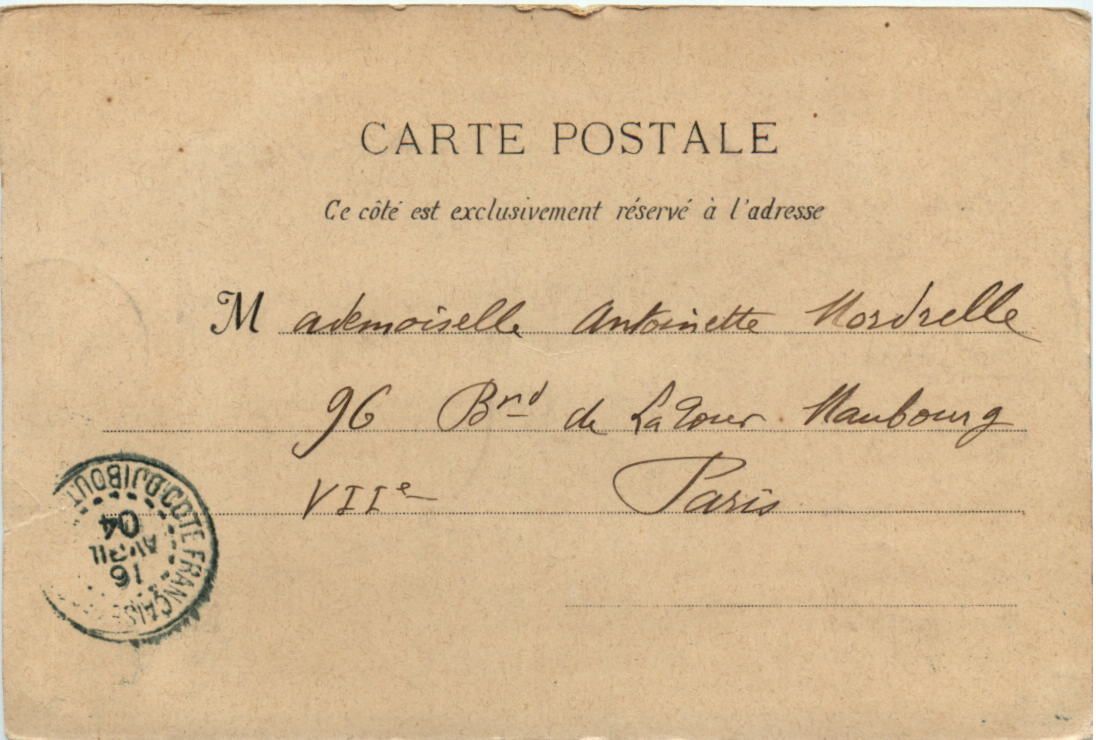 CARTE POSTALE
Ce côté est exclusivement réservé à l'adresse
Mademoiselle Antoinette Mordrelle
96 Brd de La Tour Maubourg
VIIe Paris
DJIBOUTI COTE FRANÇAISE
16
AVRIL
04